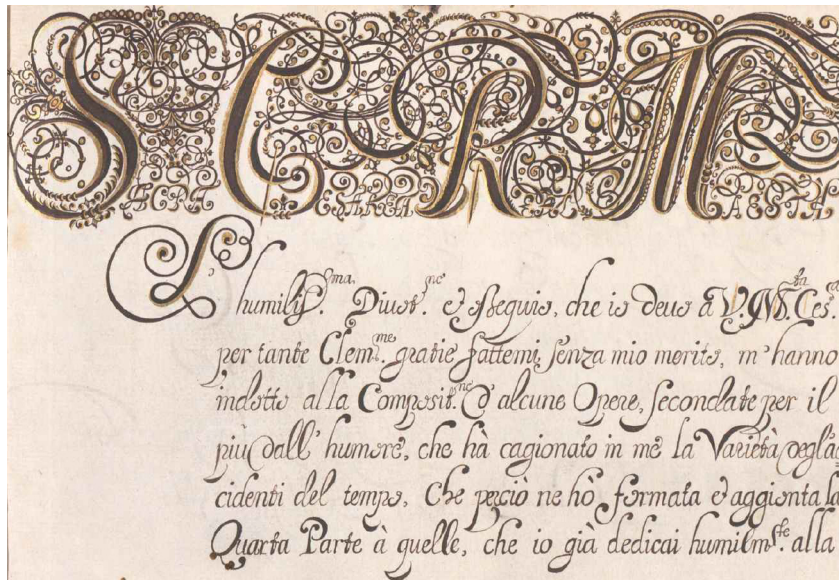 SACRA CESAREA REAL MAESTA
L'humiliss.ma Diuot.ne e ossequio, che io deuo a V. M.ta Ces.a
per tante Clem.me gratie fattemi, senza mio merito, m'hanno
indotto alla Composit.ne d'alcune Opere, secondate per il
più dall'humore, che hà cagionato in me la Varietà degl'ac
cidenti del tempo, Che perciò ne hò formata e aggionta la
Quarta Parte à quelle, che io già dedicai humilm.te alla